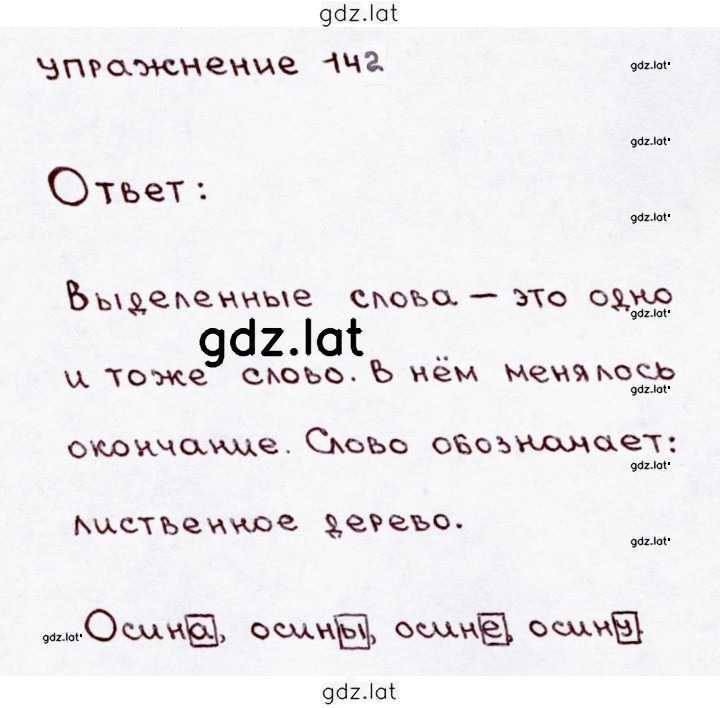 gdz.lat
упражнение 142
gdz.lat
gdz.lat
Ответ:
gdz.lat
Выделенные слова – это одно
gdz.lat
gdz.lat
и тоже слово. В нём менялось
gdz.lat
окончание. Слово обозначает:
gdz.lat
лиственное дерево.
gdz.lat
gdz.lat Осина, осины, осине, осину.
gdz.lat